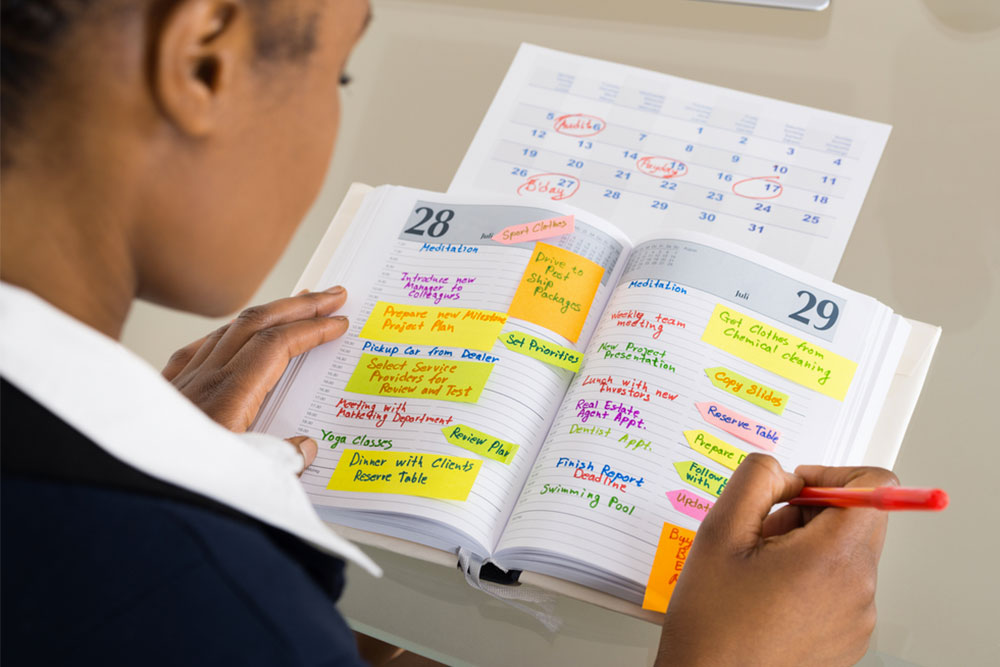 Audit
5 6 7 8 1 2 3 4
12 13 14 15 9 10 11
Payday
19 20 21 22 16 17 18
26 27 28 29 23 24 25
B'day
30 31
28
Juli
Sport Clothes
Meditation
Drive to
Post
Ship
Packages
Introduce new
Manager to
Colleagues
Prepare new Milestone
Project Plan
Set Priorities
Pickup Car from Dealer
Select Service
Providers for
Review and Test
Meeting with
Marketing Department
Yoga Classes
Review Plan
Dinner with Clients
Reserve Table
Juli
29
Meditation
Weekly team
meeting
Got Clothes from
Chemical cleaning
New Project
Presentation
Copy Slides
Lunch with new
Investors
Real Estate
Agent Appt.
Reserve Table
Dentist Appt.
Prepare
Finish Report
Deadline
Follow
with
Swimming Pool
Buy